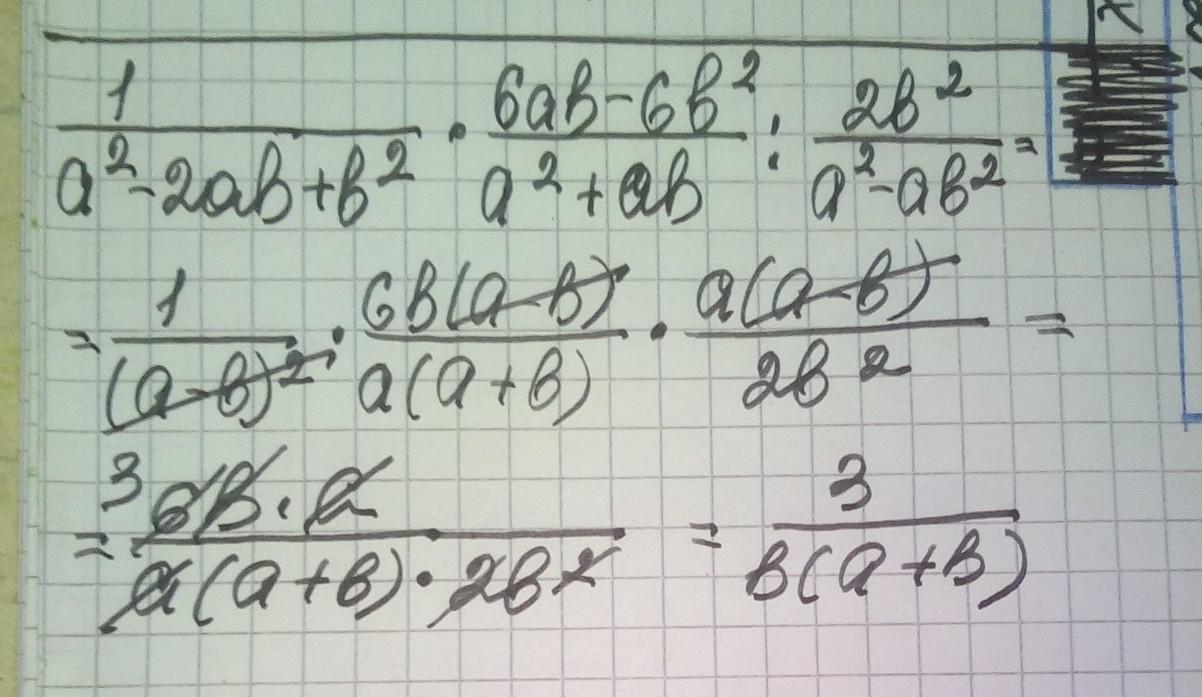 1/(a²-2ab+b²) · (6ab-6b²)/(a²+ab) : 2b²/(a²-ab²) =
= 1/(a-b)² · 6b(a-b)/a(a+b) · a(a-b)/2b² =
= 3 6b·a/a(a+b)·2b² = 3/b(a+b)